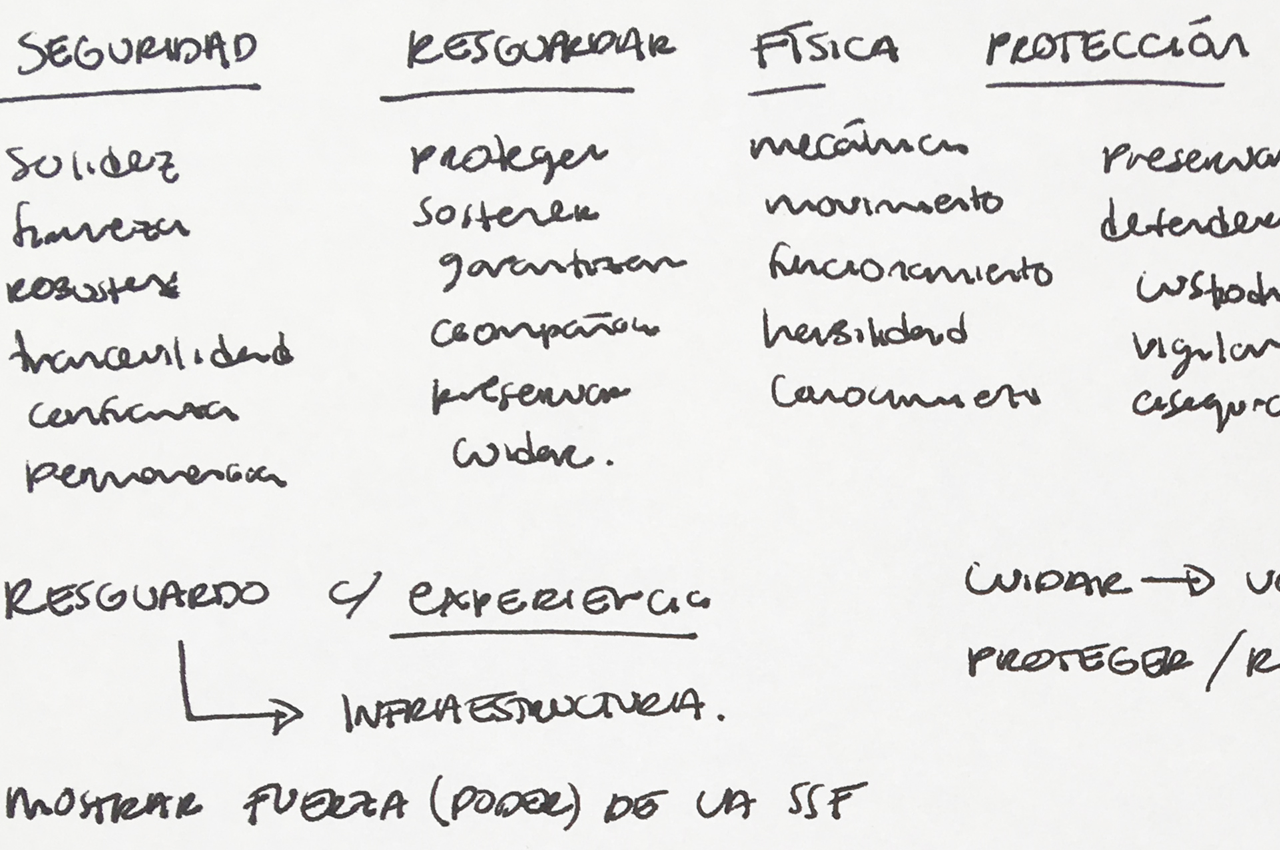 SEGURIDAD RESGUARDAR FÍSICA PROTECCIÓN
solidez proteger mecánica preservar
firmeza sostener movimiento defender
robustez garantizar funcionamiento custodi
tranquilidad acompañar habilidad vigilar
confianza preservar conocimiento asegura
permanencia cuidar.
RESGUARDO c/ EXPERIENCIA CUIDAR → 
INFRAESTRUCTURA. PROTEGER / R
MOSTRAR FUERZA (PODER) DE LA SSF